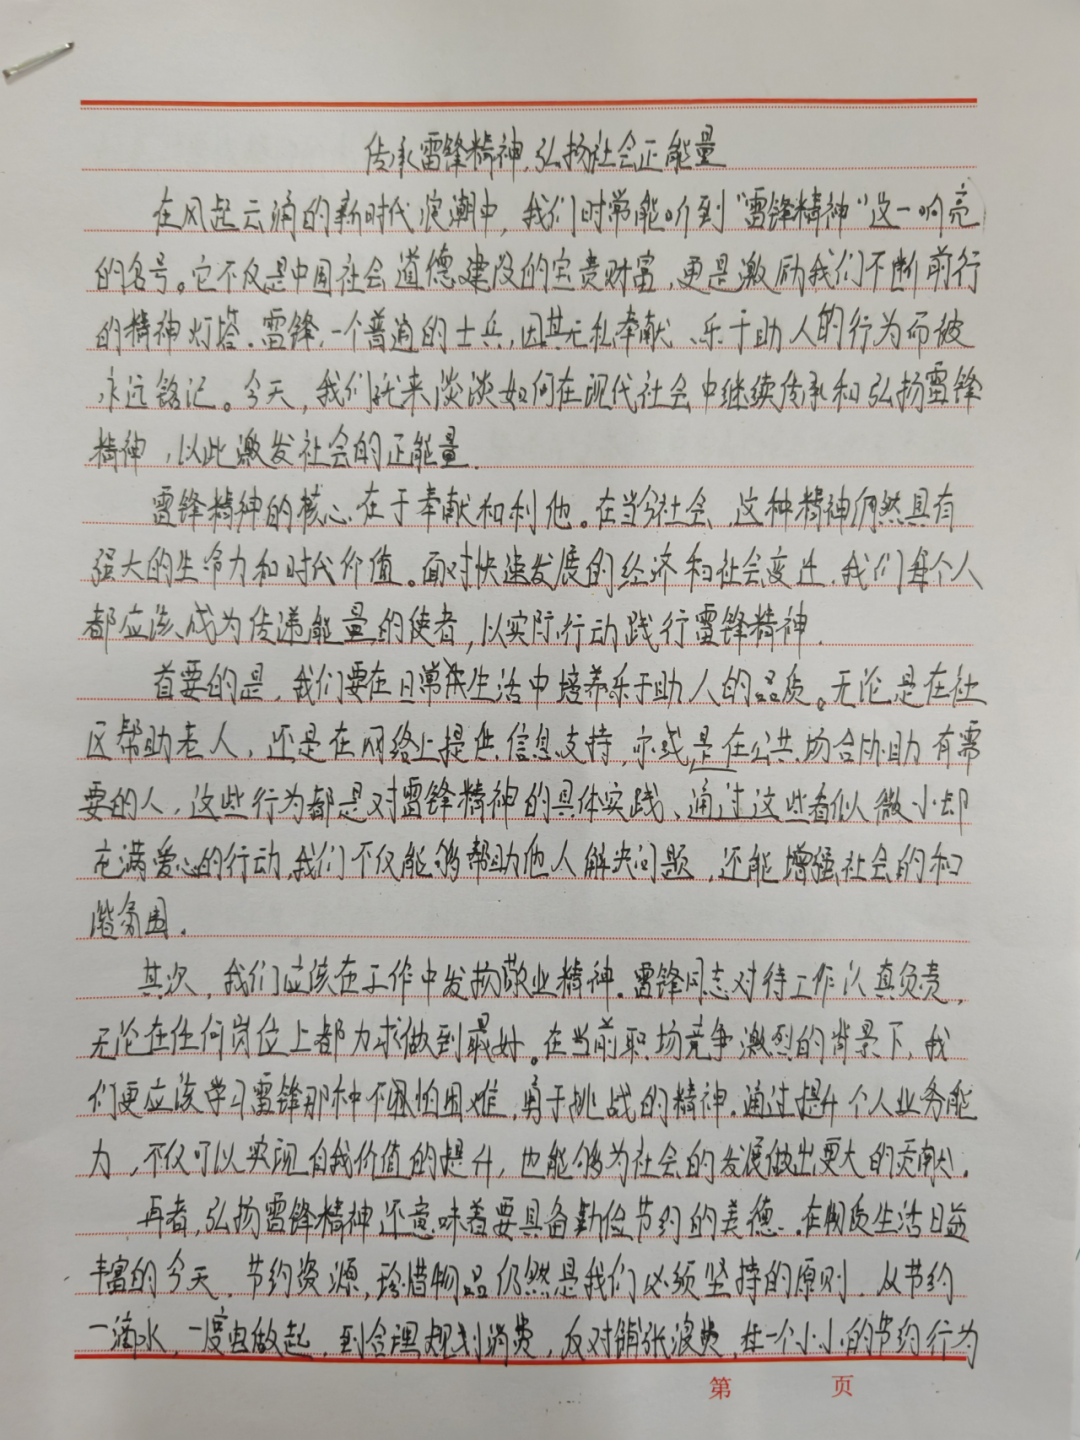 传承雷锋精神,弘扬社会正能量
在风起云涌的新时代浪潮中，我们时常能听到“雷锋精神”这一响亮
的名号。它不仅是中国社会道德建设的宝贵财富,更是激励我们不断前行
的精神灯塔.雷锋,一个普通的士兵,因其无私奉献、乐于助人的行为而被
永远铭记。今天，我们就来谈谈如何在现代社会中继续传承和弘扬雷锋
精神，以此激发社会的正能量.
雷锋精神的核心在于奉献和利他。在当今社会,这种精神仍然具有
强大的生命力和时代价值。面对快速发展的经济和社会变迁,我们每个人
都应该成为传递能量的使者,以实际行动践行雷锋精神.
首要的是,我们要在日常生活中培养乐于助人的品质。无论是在社
区帮助老人,还是在网络上提供信息支持,亦或是在公共场合协助有需
要的人,这些行为都是对雷锋精神的具体实践、通过这些看似微小却
充满爱心的行动,我们不仅能够帮助他人解决问题,还能增强社会的和
谐氛围.
其次,我们应该在工作中发扬敬业精神.雷锋同志对待工作认真负责,
无论在任何岗位上都力求做到最好。在当前职场竞争激烈的背景下,我
们更应该学习雷锋那种不惧怕困难,勇于挑战的精神.通过提升个人业务能
力,不仅可以实现自我价值的提升,也能够为社会的发展做出更大的贡献.
再者,弘扬雷锋精神还意味着要具备勤俭节约的美德.在物质生活日益
丰富的今天,节约资源,珍惜物品仍然是我们必须坚持的原则.从节约
一滴水,一度电做起,到合理规划消费,反对铺张浪费,每一个小小的节约行为
第 页